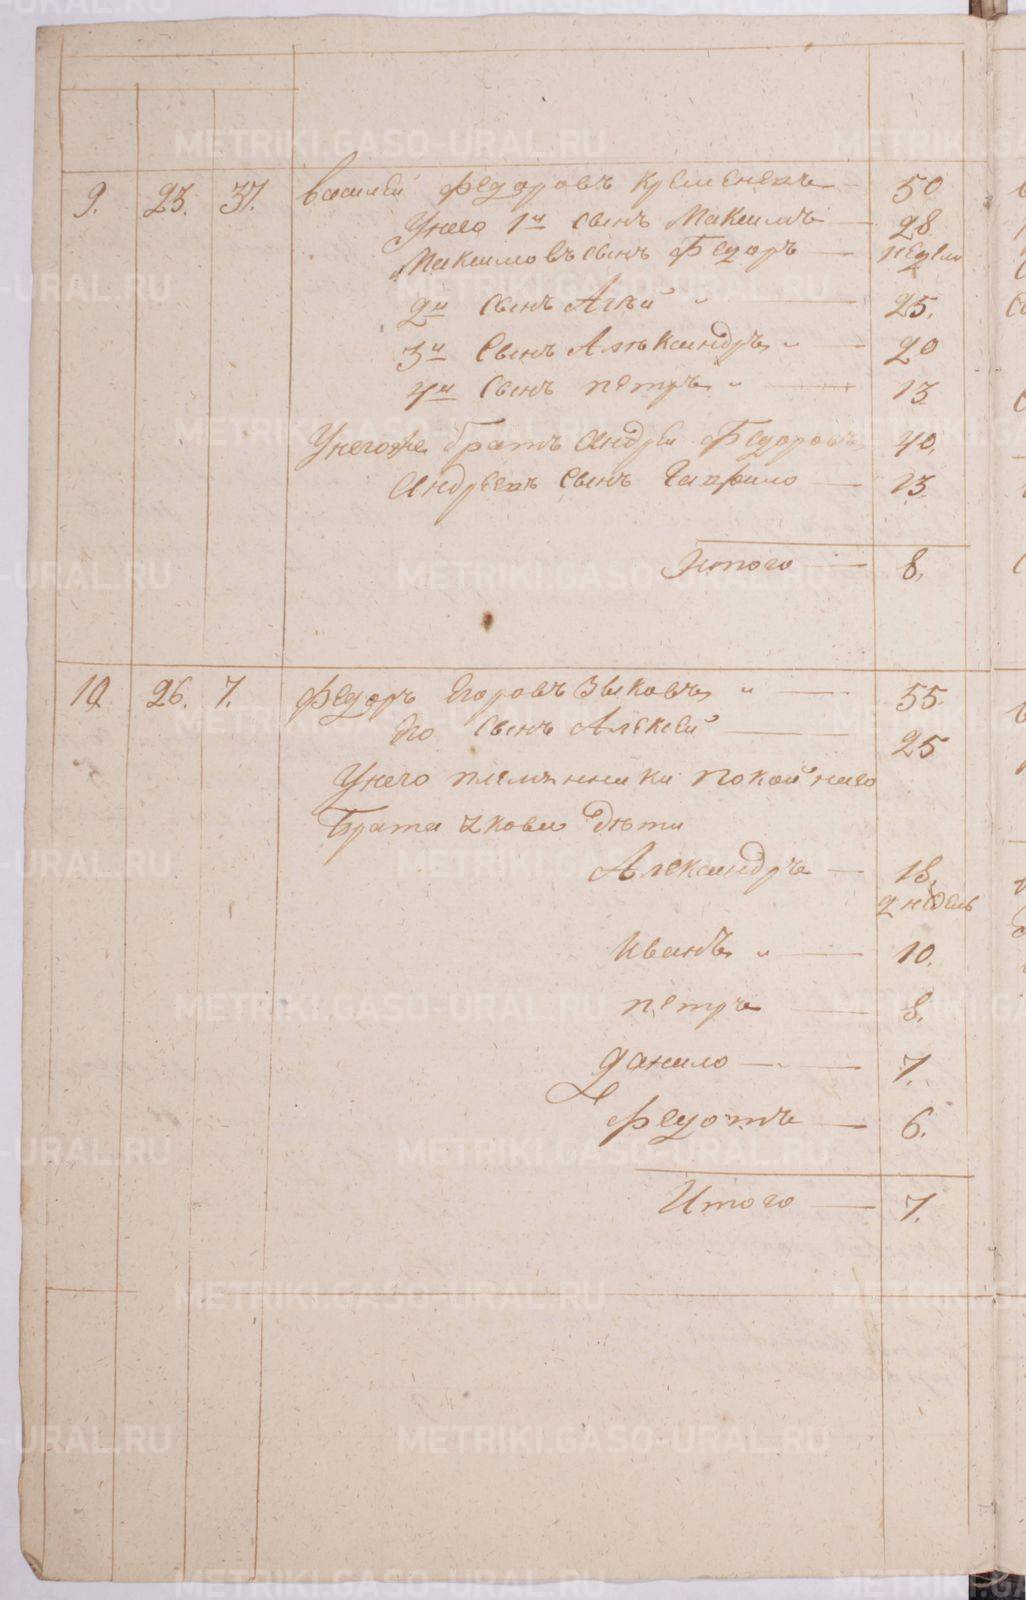 9. 23. 37. Василей Федоровъ Кремененъ 50
У него 1й сынъ Максимъ 28
Максимовъ сынъ Федоръ недели
2й сынъ Агѣй 25.
3й сынъ Алѣксандръ 20
4й сынъ Петръ 13
У негоже братъ Андрей Федоровъ 40,
Андреевъ сынъ Гаврило 13.
Итого 8,
10. 26. 7. Федоръ Егоровъ Зыковъ 55.
Его сынъ Алексей 25
У него племянники покойнаго
Брата Якова дѣти
Александръ 18,
2 недель
Иванъ 10.
Петръ 8.
Данило 7.
Федотъ 6.
Итого 7.
METRIKI.GASO-URAL.RU